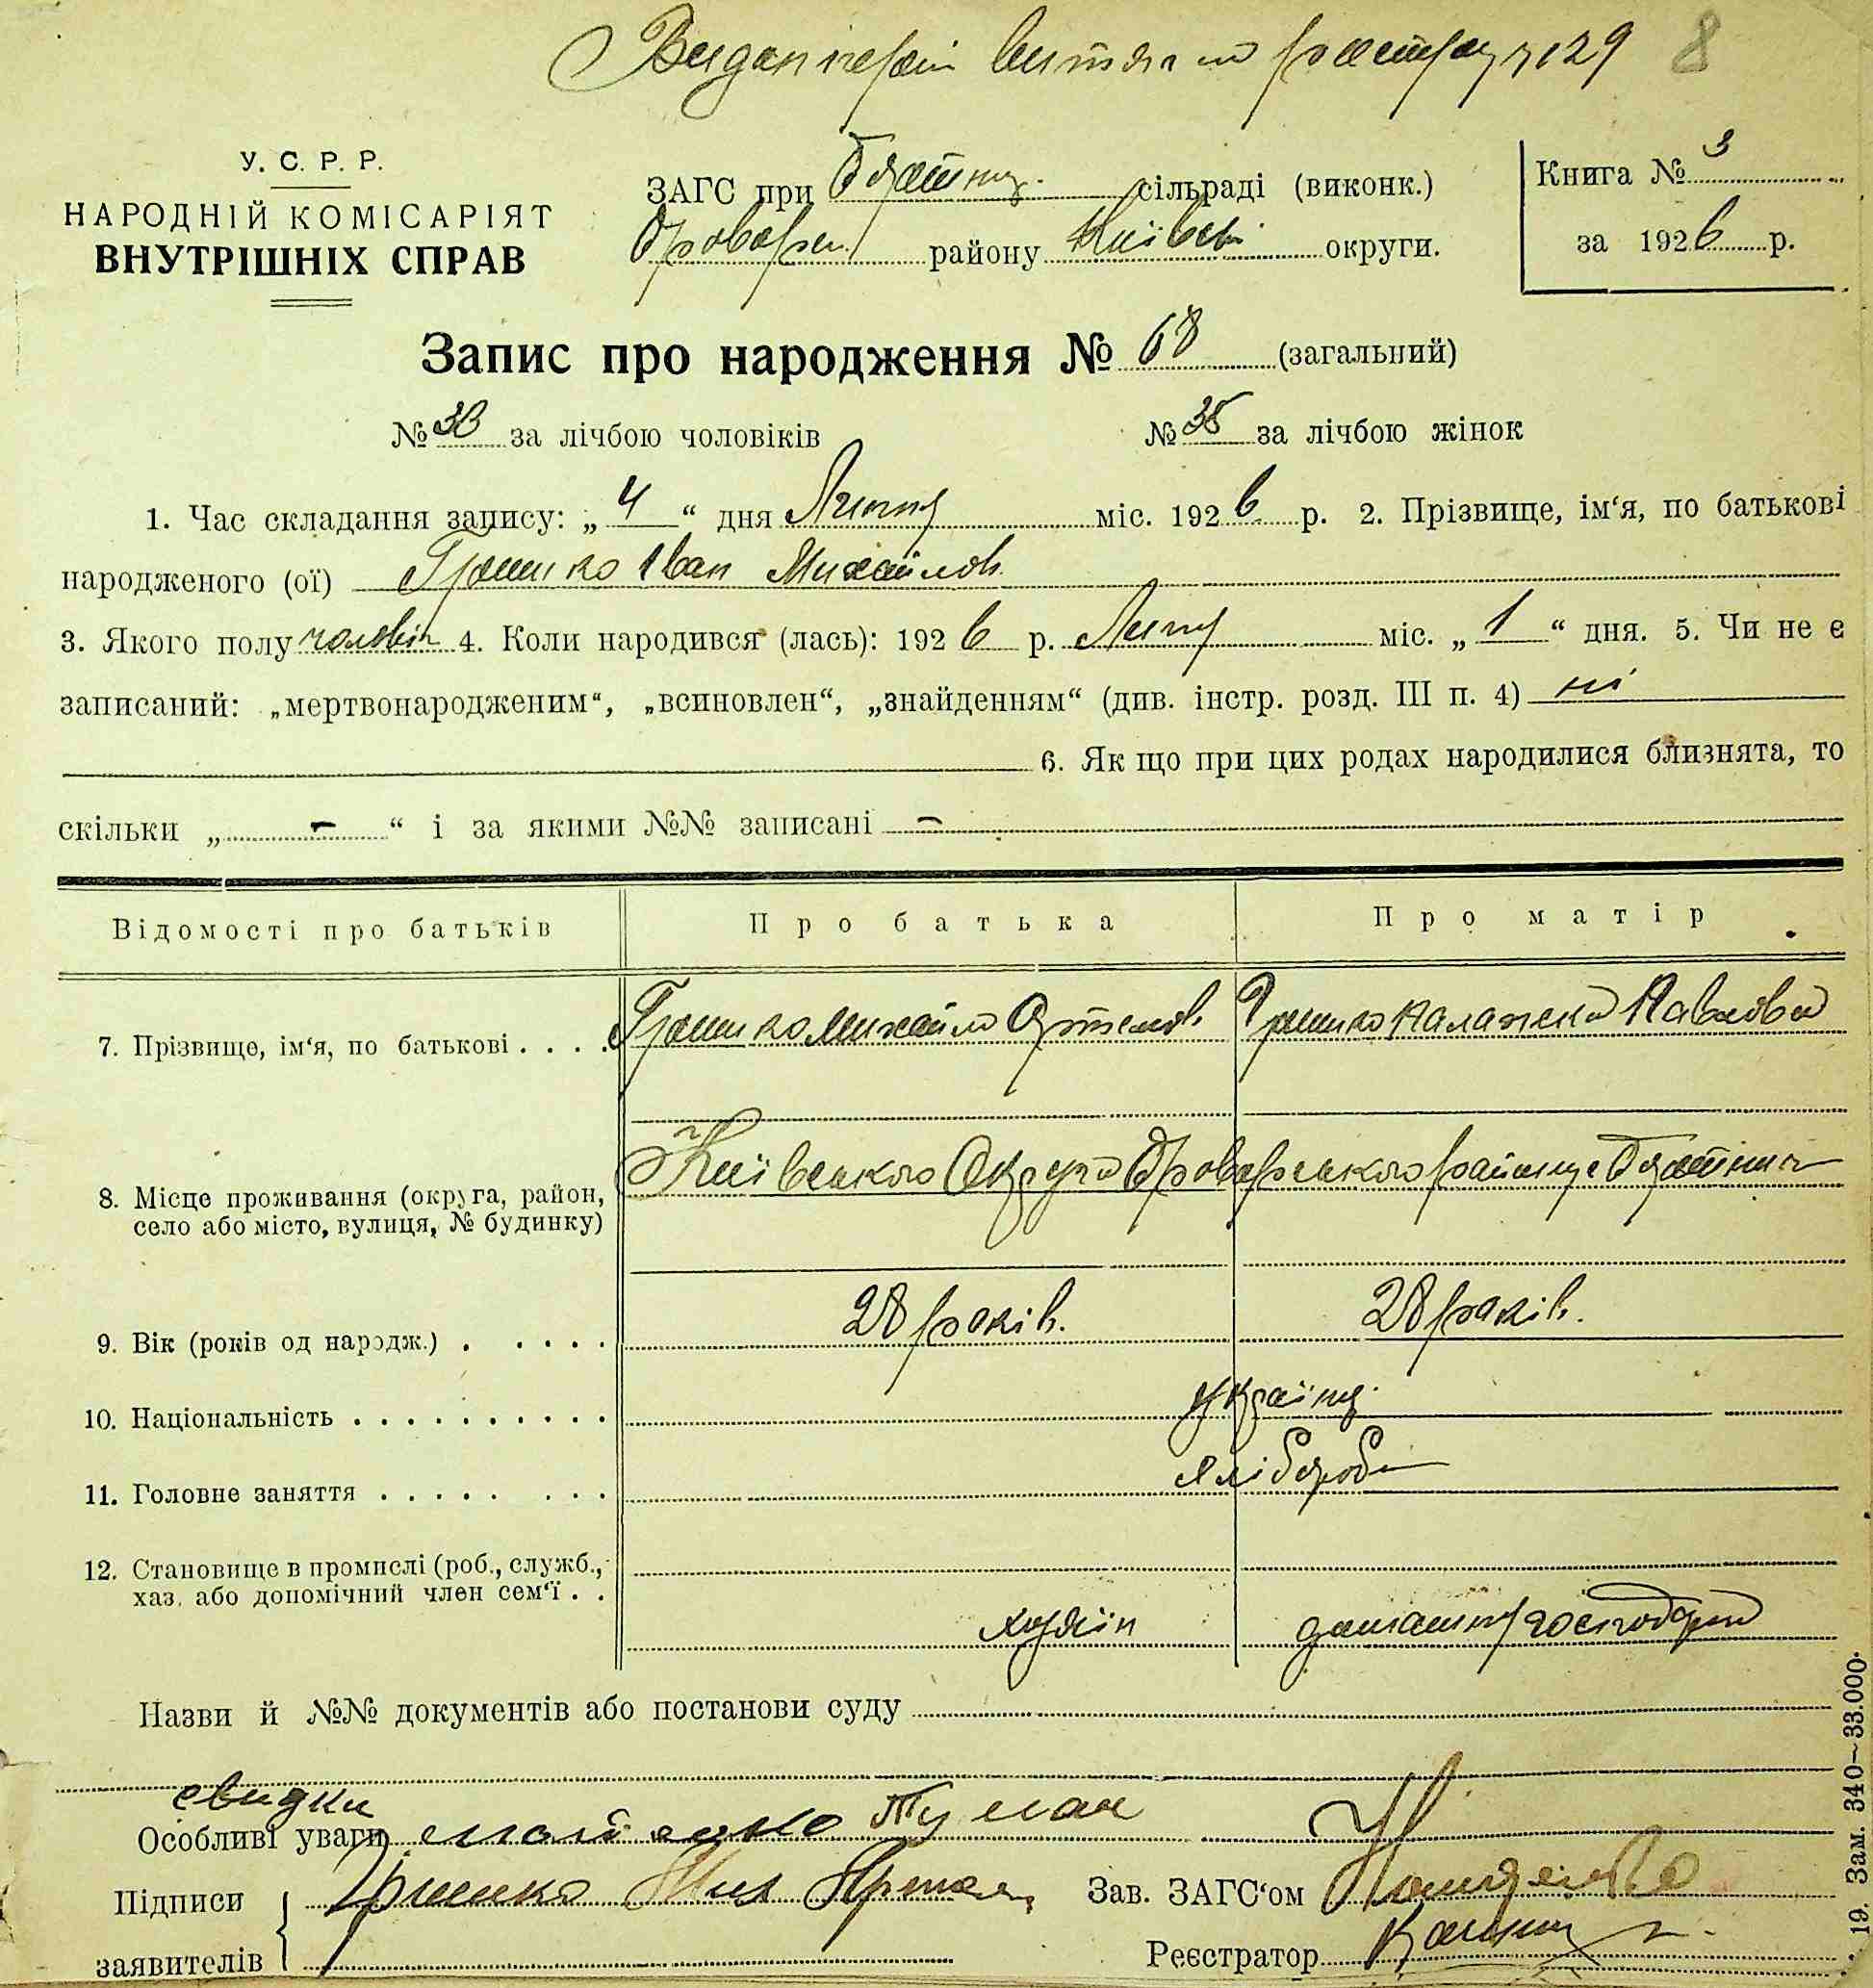 8
У. С. Р. Р.
НАРОДНІЙ КОМІСАРІЯТ
ВНУТРІШНІХ СПРАВ
ЗАГС при сільраді (виконк.)
Броварськ. району Київськ. округи.
Книга № 3
за 1926 р.
Запис про народження № 68 (загальний)
№ 33 за лічбою чоловіків № 35 за лічбою жінок
1. Час складання запису: „4“ дня Липня міс. 1926 р. 2. Прізвище, ім‘я, по батькові
народженого (ої) Грашико Іван Михайлов.
3. Якого полу чоловіч 4. Коли народився (лась): 1926 р. Липня міс. „1“ дня. 5. Чи не є
записаний: „мертвонародженим“, „всиновлен“, „знайденням“ (див. інстр. розд. III п. 4) ні
6. Як що при цих родах народилися близнята, то
скільки „ – “ і за якими №№ записані –
Відомості про батьків Про батька Про матір
7. Прізвище, ім‘я, по батькові . . . . Грашико Михайло Артемов. Грашико Палажка Павлова
8. Місце проживання (округа, район, село або місто, вулиця, № будинку) Київського Округа Броварського району с.
9. Вік (років од народж.) . . . . . 28 років. 28 років.
10. Національність . . . . . . . . . . Українці
11. Головне заняття . . . . . . . . Хлібороб
12. Становище в промислі (роб., служб., хаз. або допомічний член сем‘ї . . хазяїн домашня господарка
Назви й №№ документів або постанови суду
свидки
Особливі уваги Туман
Підписи Мих Артем
заявителів
Зав. ЗАГС‘ом
Реєстратор
19. Зам. 340—33.000.